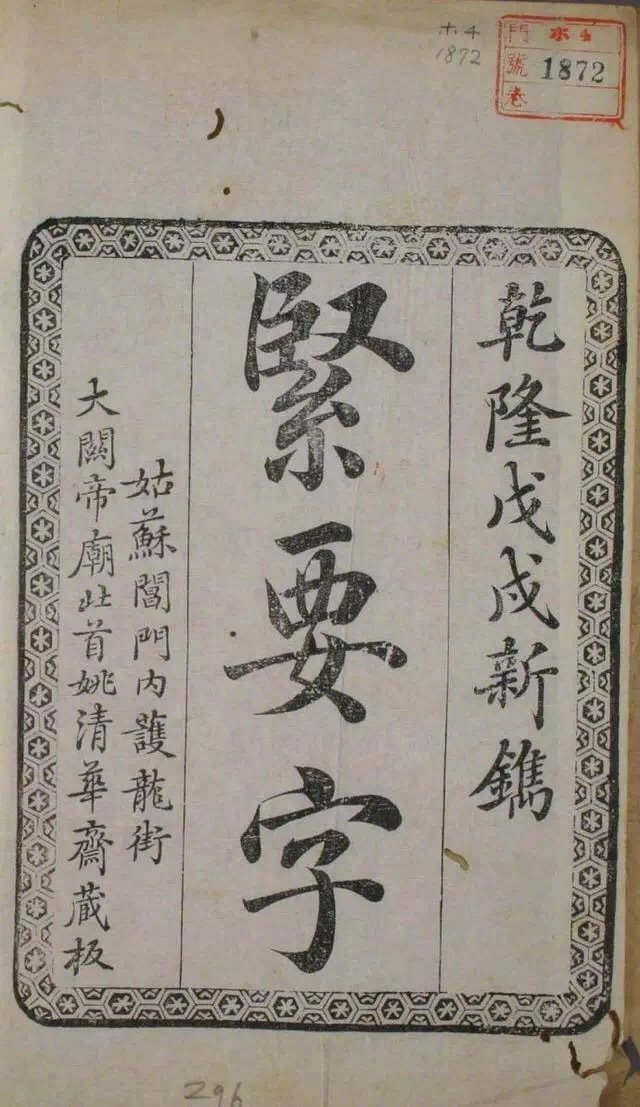 ホ4
1872
門 ホ4
號 1872
卷
乾隆戊戌新鐫
緊要字
姑蘇閶門内護龍街
大關帝廟北首姚清華齋藏板
296